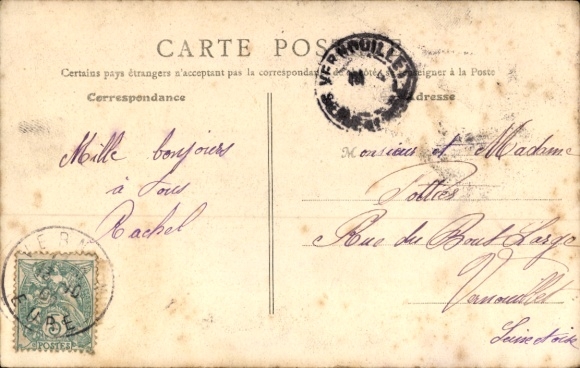 CARTE POSTALE
Certains pays étrangers n'acceptant pas la correspondance de côté, se renseigner à la Poste
Correspondance
Adresse
VERNOUILLET
Mille bonjours
à tous
Rachel
Monsieur et Madame
Pottier
Rue du Bout Large
Vernouillet
Seine et oise
EURE
5
POSTES